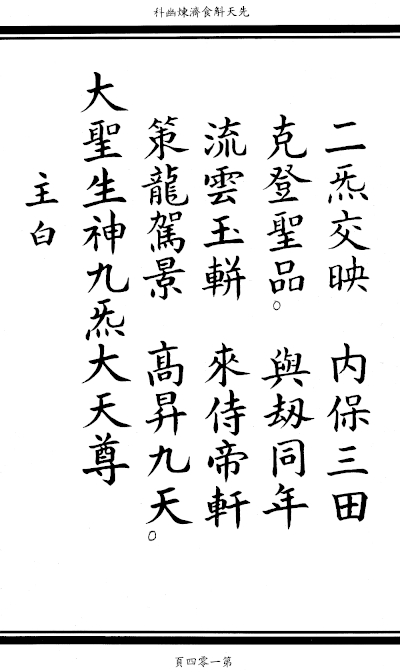 科幽煉濟食斛天先
二炁交映　內保三田
克登聖品。　與劫同年
流雲玉軿　來侍帝軒
策龍駕景　高昇九天。
大聖生神九炁大天尊
主白
頁四零一第